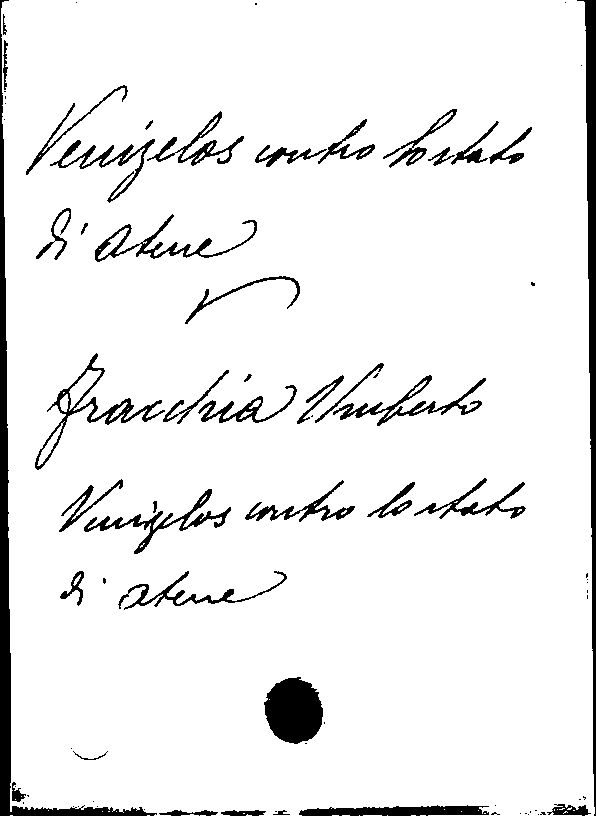 Venizelos contro lo stato
di Atene
Fracchia Umberto
Venizelos contro lo stato
di Atene